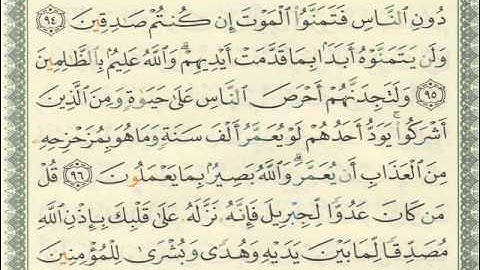 دُونِ ٱلنَّاسِ فَتَمَنَّوُا۟ ٱلْمَوْتَ إِن كُنتُمْ صَـٰدِقِينَ ٩٤
وَلَن يَتَمَنَّوْهُ أَبَدًۢا بِمَا قَدَّمَتْ أَيْدِيهِمْ ۗ وَٱللَّهُ عَلِيمٌۢ بِٱلظَّـٰلِمِينَ
٩٥ وَلَتَجِدَنَّهُمْ أَحْرَصَ ٱلنَّاسِ عَلَىٰ حَيَوٰةٍ وَمِنَ ٱلَّذِينَ
أَشْرَكُوا۟ ۚ يَوَدُّ أَحَدُهُمْ لَوْ يُعَمَّرُ أَلْفَ سَنَةٍ وَمَا هُوَ بِمُزَحْزِحِهِۦ
مِنَ ٱلْعَذَابِ أَن يُعَمَّرَ ۗ وَٱللَّهُ بَصِيرٌۢ بِمَا يَعْمَلُونَ ٩٦ قُلْ
مَن كَانَ عَدُوًّا لِّجِبْرِيلَ فَإِنَّهُۥ نَزَّلَهُۥ عَلَىٰ قَلْبِكَ بِإِذْنِ ٱللَّهِ
مُصَدِّقًا لِّمَا بَيْنَ يَدَيْهِ وَهُدًى وَبُشْرَىٰ لِلْمُؤْمِنِينَ